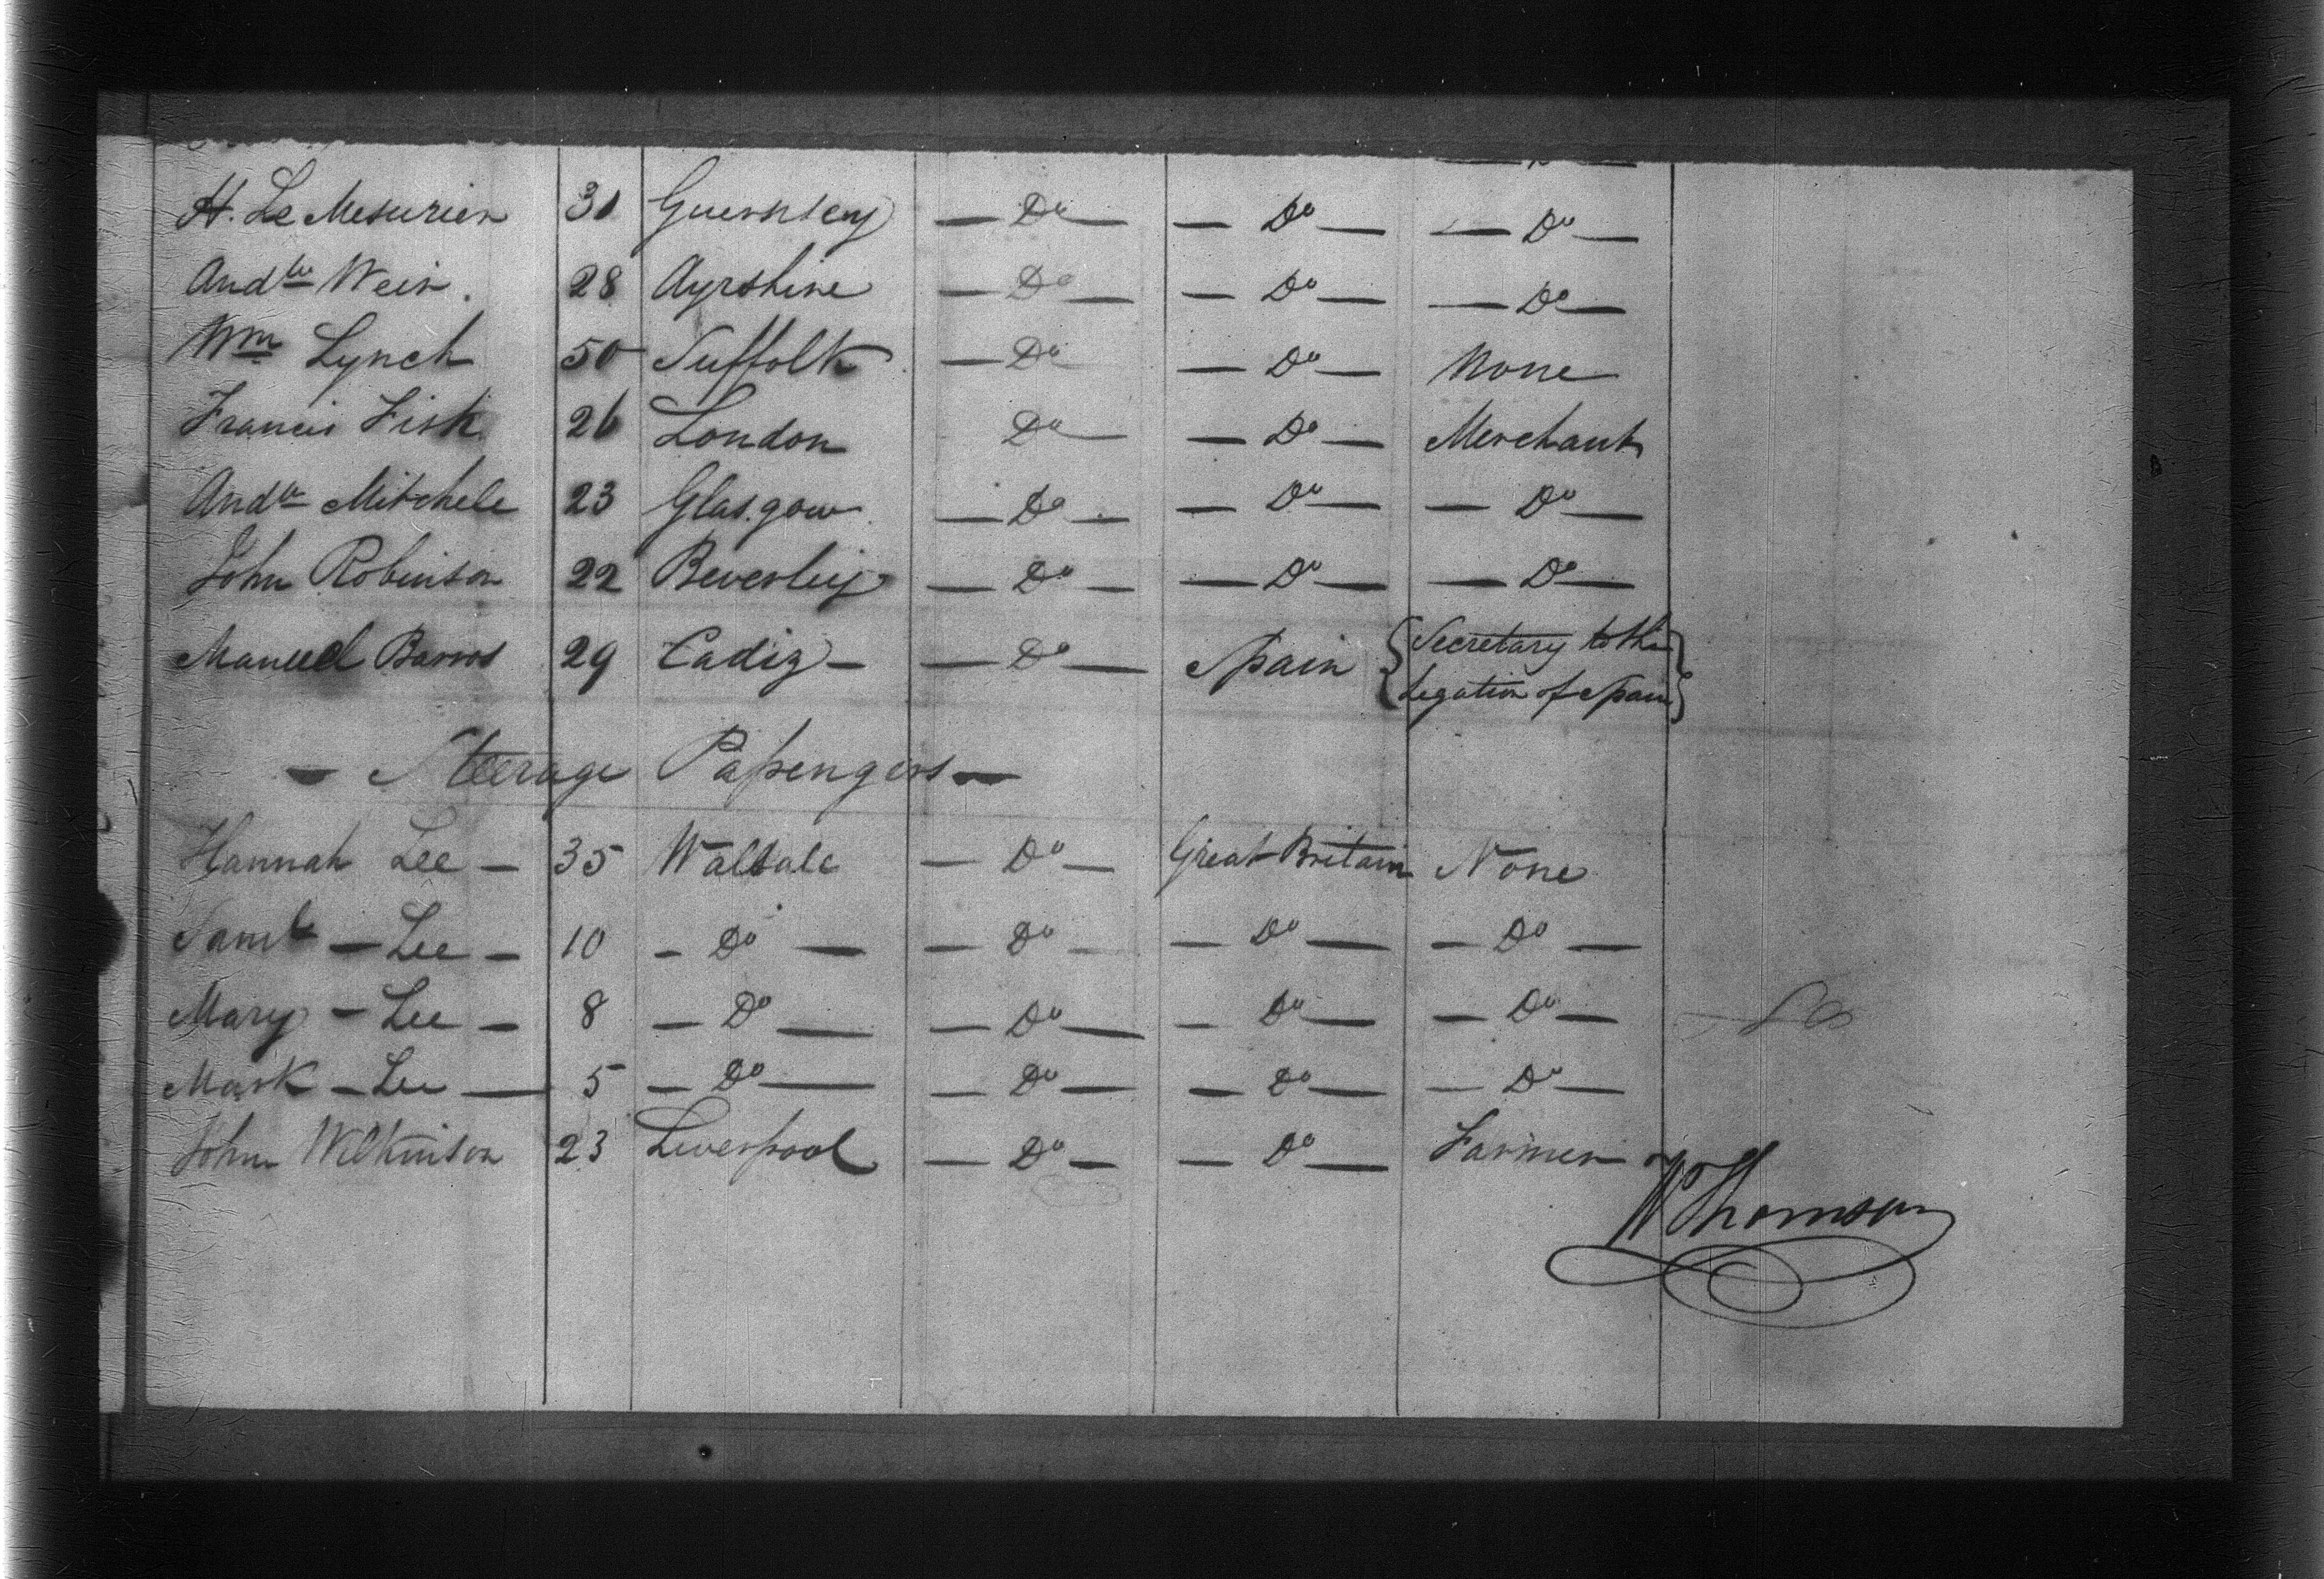 H. Le Mesurier 31 Guernsey — Do — — Do — — Do —
Andw Weir. 28 Ayrshire — Do — — Do — — Do —
Wm Lynch 50 Suffolk — Do — Do — None
Francis Fisk 26 London Do — — Do — Merchant
Andw Mitchele 23 Glasgow — Do — — Do — — Do —
John Robinson 22 Beverley — Do — — Do — — Do —
Manuel Barros 29 Cadiz — — Do — Spain {Secretary to the
Legation of Spain}
— Steerage Passengers —
Hannah Lee — 35 — Do — Great Britain None
Saml — Lee — 10 — Do — — Do — — Do — — Do —
Mary — Lee — 8 — Do — — Do — — Do — — Do —
Mark — Lee — 5 — Do — — Do — — Do — — Do —
John Wilkinson 23 Liverpool — Do — — Do — Farmer
W Thomson